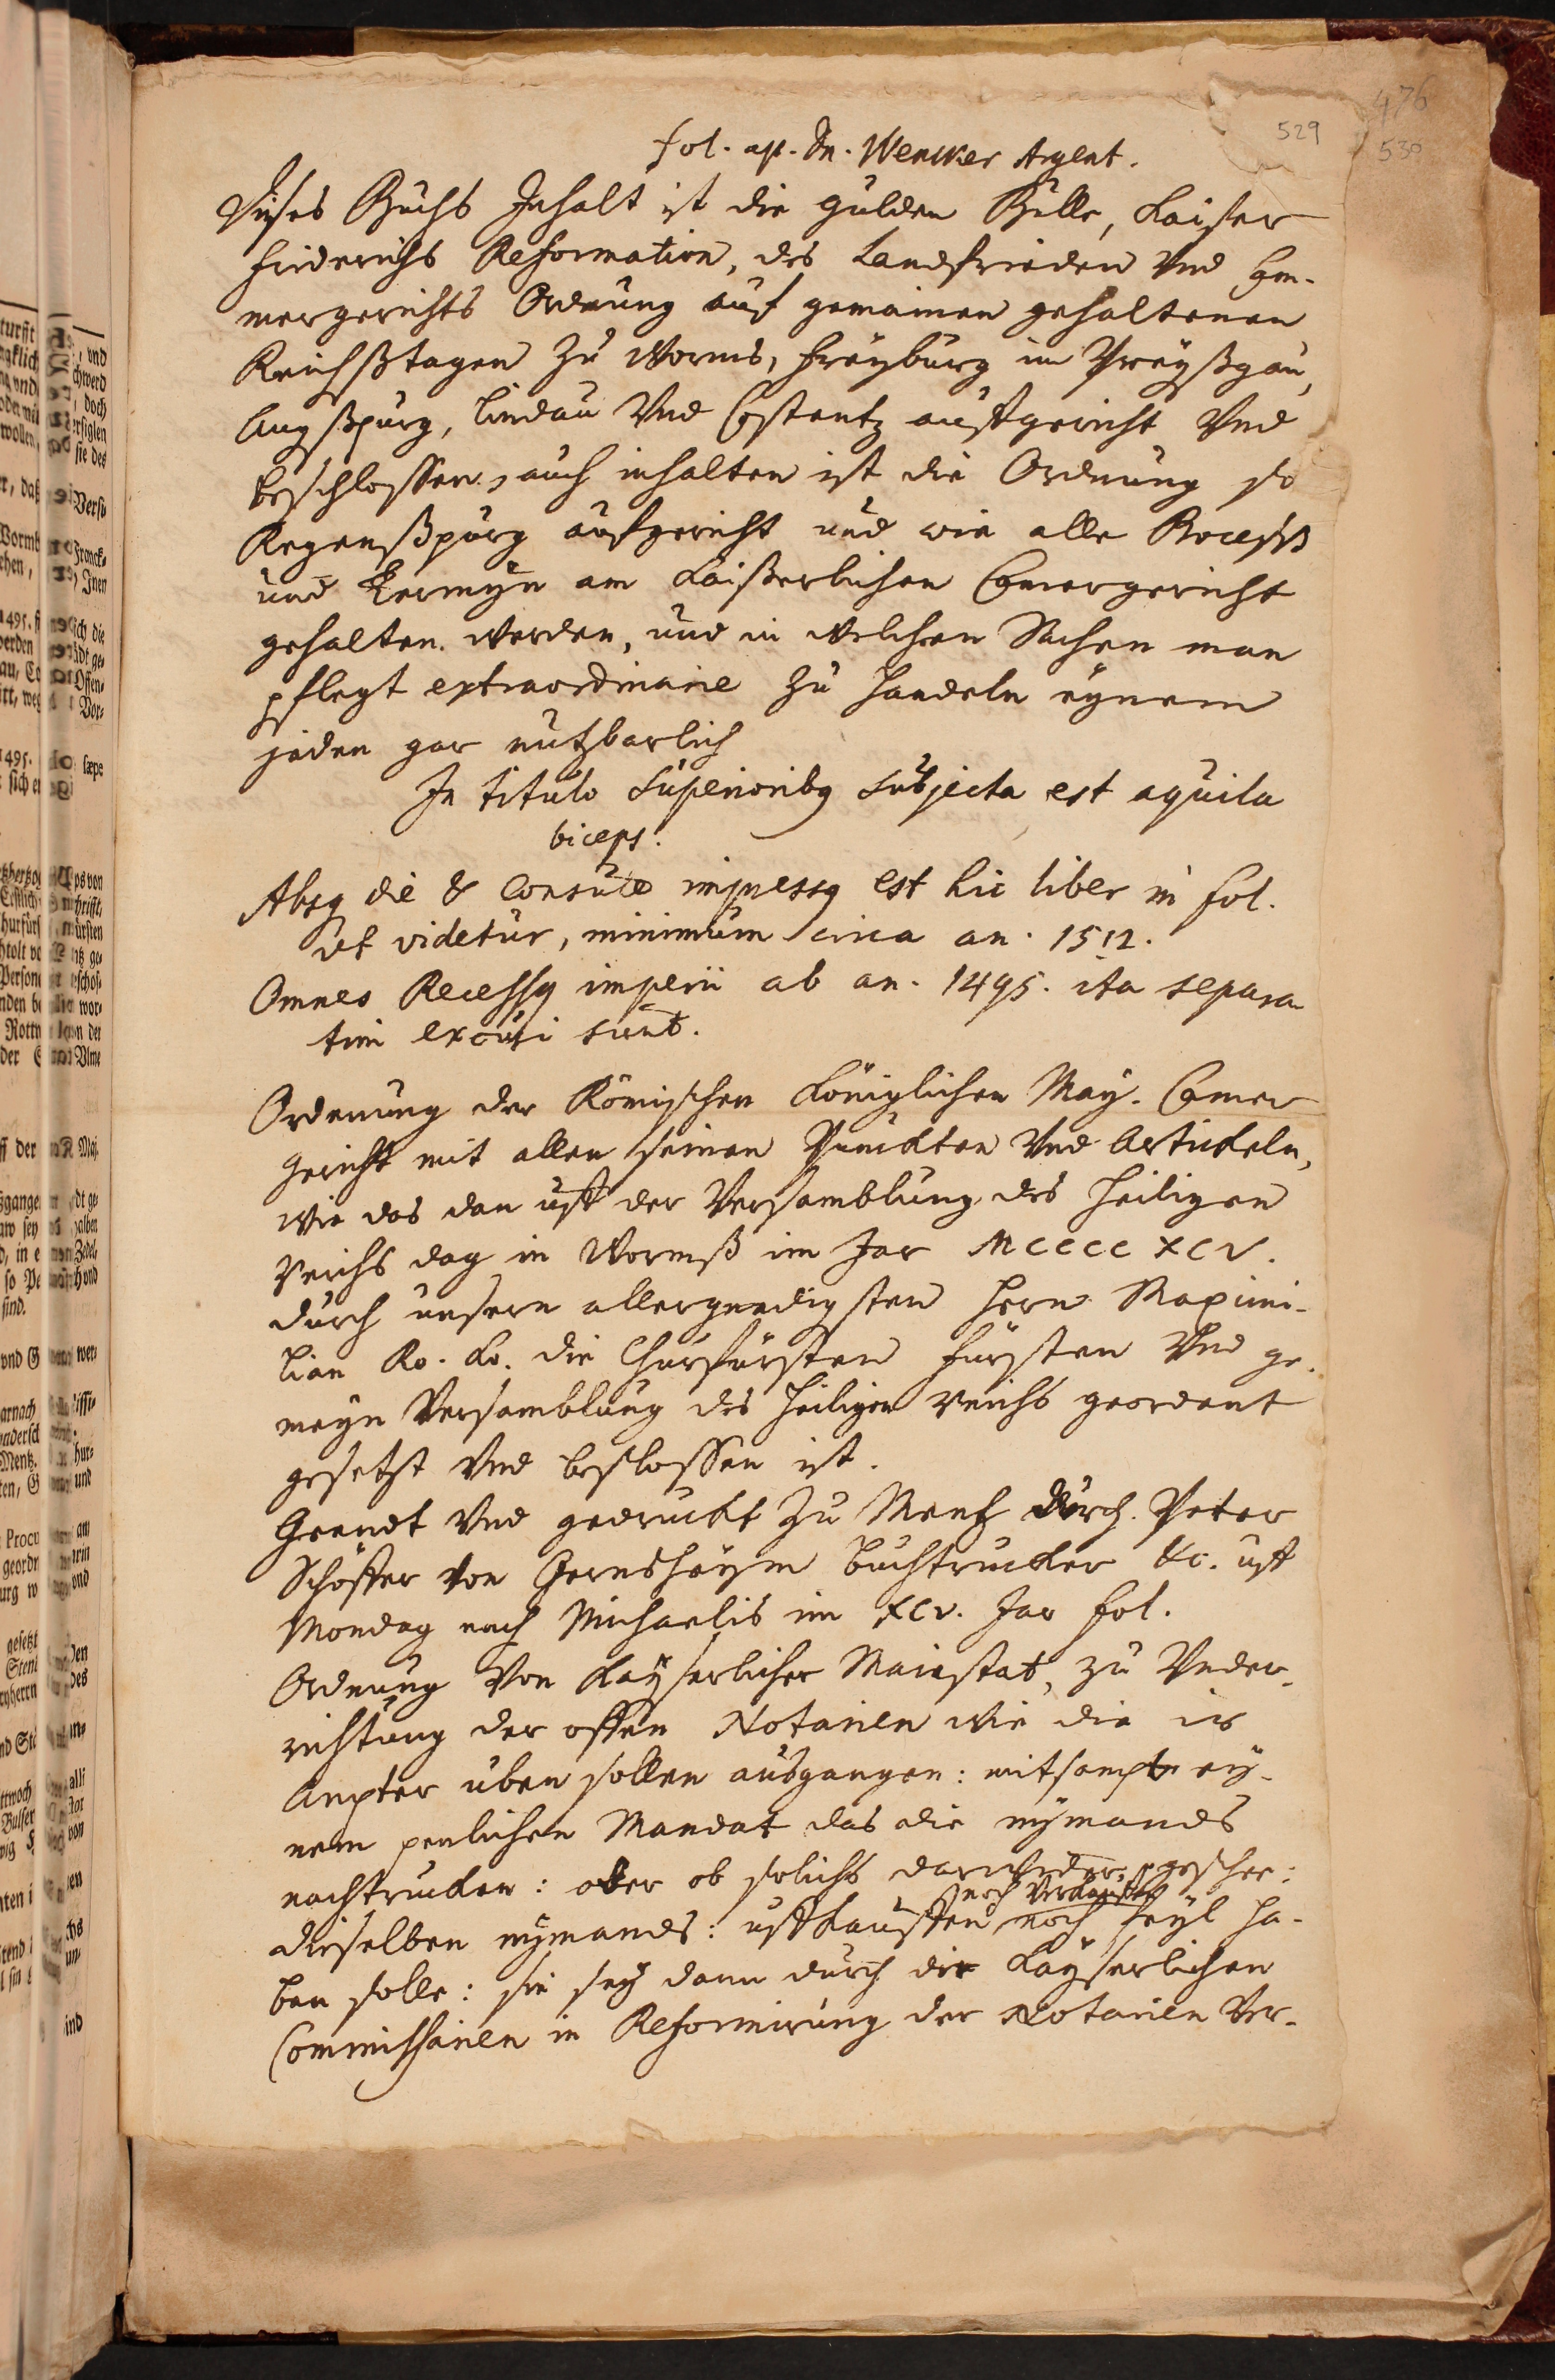 529
476
530
fol. ap. Dn. Wencker Argent.
Dieses Buchs Inhalt ist die gulden Bulle, Kaiser
Friderichs Reformation, des Landfrieden Vnd Cam-
mergerichts Ordnung auf gemainen gehaltenen
Reichßtagen zu Worms, Freyburg im Preyßgau,
Augßpurg, Lindau Vnd Costentz auffgericht Vnd
beschlossen, auch inhalten ist die Ordnung so
Regenßpurg aufgericht und wie alle Process
und Termyn am Kaißerlichen Camergericht
gehalten werden, und in welchen Sachen man
pflegt extraordinarie zu handeln eynem
jeden gar nutzbarlich
In titulo superioribq subjecta est aquila
biceps.
Absq die & Consule impressq est hic liber in fol.
ut videtur, minimum circa an. 1512.
Omnes Recessq imperii ab an. 1495. ita separa
tim excusi sunt.
Ordenung der Römischen Königlichen May. Camer
gericht mit allen seinen Punckten Vnd Artickeln,
wie das dan uff der Versamblung des Heiligen
reichs dag in Wormß im Jar MCCCC XCV.
durch unsern allergnedigsten Hern Maximi-
lian Ro. Ko. die Churfürsten Fürsten Vnd ge-
meyn Versamblung des heiligen reichs geordent
gesetzt Vnd beslossen ist.
Geendt Vnd gedruckt zu Mentz durch Peter
Schöffer von Gernsheym buchtrucker &c. uff
Mondag nach Michaelis im XCV. Jar fol.
Ordnung Von Kayserlicher Maiestat, zu Vnder-
richtung der offen Notarien wie die ir
Ampter uben sollen ausgangen: mitsampt ey-
nem penlichen Mandat das die nymands
nachtrucken: ober ob solichs darwider geschee:
noch verkauffen
dieselben nymands: uffkauffen noch feyl ha-
ben solle: sie sey dann durch die Kayserlichen
Commissarien in Reformirung der Notarien Ver-